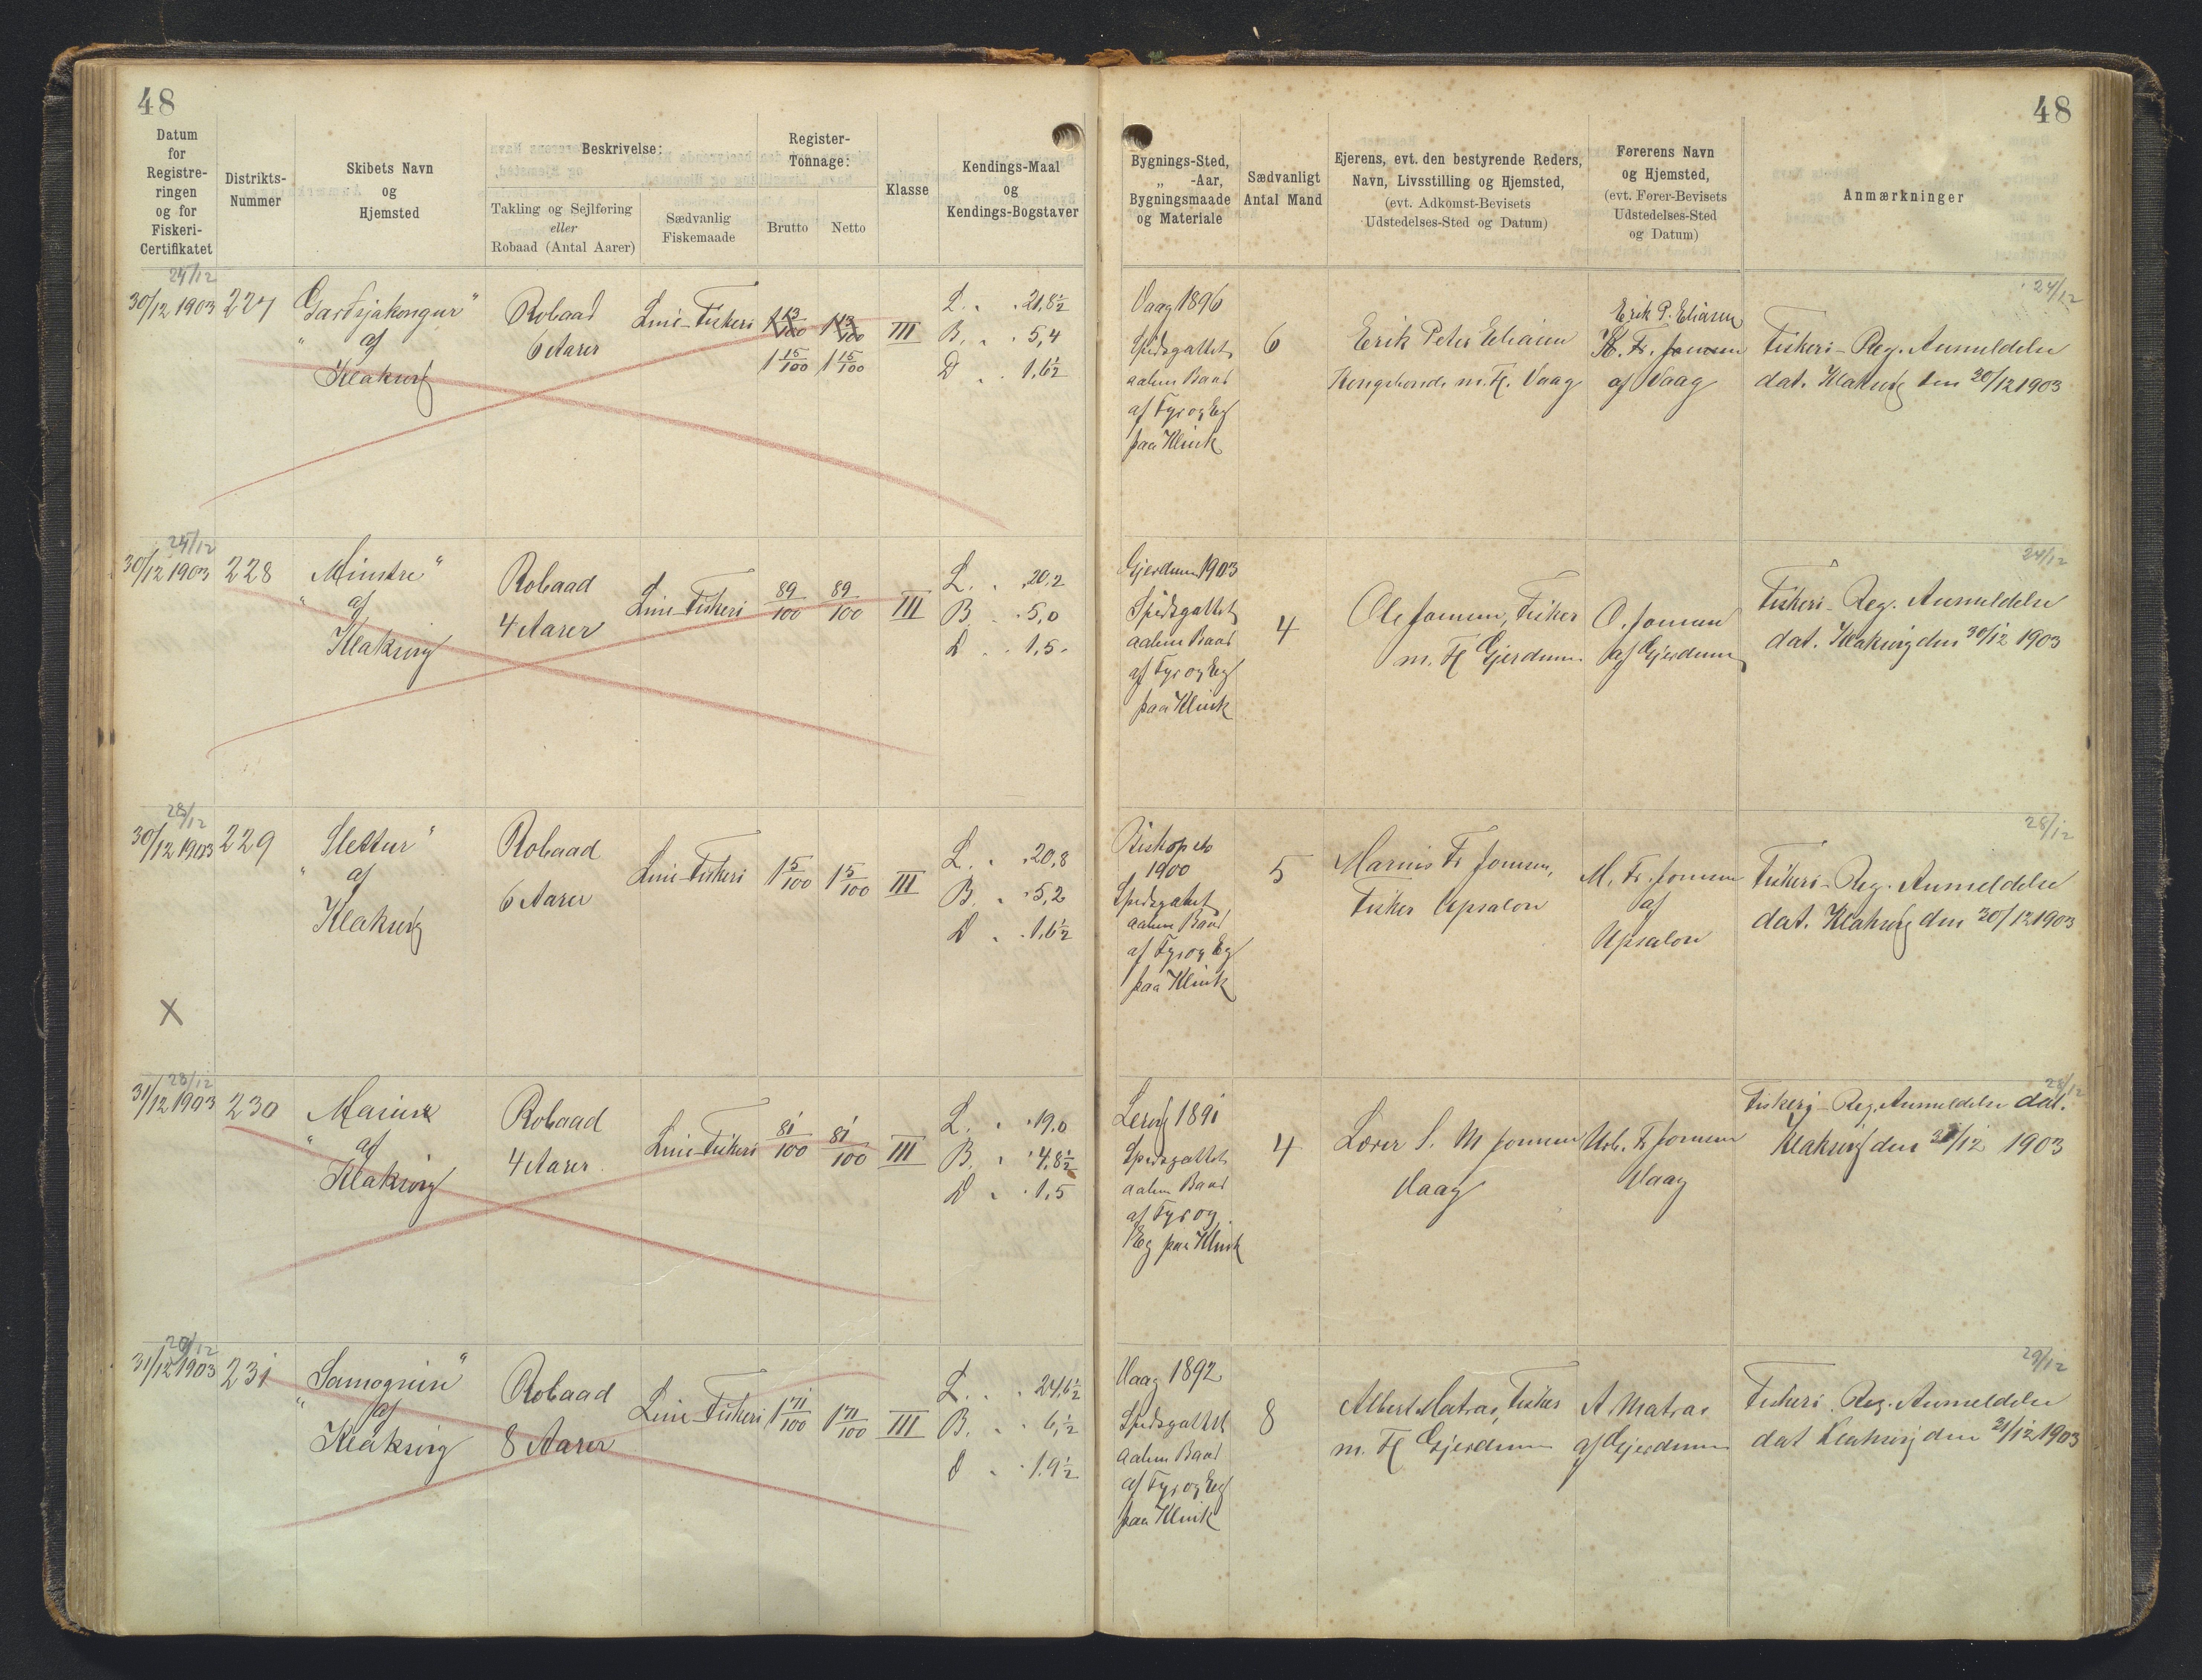 48
48
Datum
for
Registre-
ringen
og for
Fiskeri-
Certifikatet
Distrikts-
Nummer
Skibets Navn
og
Hjemsted
Beskrivelse:
Takling og Sejlføring
eller
Robaad (Antal Aarer)
Sædvanlig
Fiskemaade
Register-
Tonnage:
Brutto
Netto
Klasse
Kendings-Maal
og
Kendings-Bogstaver
Bygnings-Sted,
„ -Aar,
Bygningsmaade
og Materiale
Sædvanligt
Antal Mand
Ejerens, evt. den bestyrende Reders,
Navn, Livsstilling og Hjemsted,
(evt. Adkomst-Bevisets
Udstedelses-Sted og Datum)
Førerens Navn
og Hjemsted,
(evt. Fører-Bevisets
Udstedelses-Sted
og Datum)
Anmærkninger
24/12
30/12 1903
227
"
af
Klaksvig
Robaad
6 Aarer
Line-Fiskeri
1 13/100
1 13/100
1 15/100
1 15/100
III
L. . . 21,8½
B. . . 5,4
D . . 1,6½
Vaag 1896
Spidsgattet
aaben Baad
af Fyr og Eg
paa Klink
6
Erik Peter Eliasen
Kongsbonde m. H. Vaag
Erik P. Eliasen
Fr. Joensen
af Vaag
24/12
Fiskeri-Reg. Anmeldelse
dat. Klaksvig den 30/12 1903
24/12
30/12 1903
228
Minstre"
" af
Klaksvig
Robaad
4 Aarer
Line-Fiskeri
89/100
89/100
III
L. . . 20,2
B. . . 5,0
D . . 1,5
Gjerdum 1903
Spidsgattet
aaben Baad
af Fyr og Eg
paa Klink
4
Ole Joensen, Fisker
m. H Gjerdum
O. Joensen
af Gjerdum
24/12
Fiskeri-Reg. Anmeldelse
dat. Klaksvig den 30/12 1903
28/12
30/12 1903
229
Slettur"
" af
Klaksvig
Robaad
6 Aarer
Line-Fiskeri
1 5/100
1 5/100
III
L. . . 20,8
B. . . 5,2
D . . 1,6½
1900
Spidsgattet
aaben Baad
af Fyr og Eg
paa Klink
5
Marius Fr Joensen,
Fisker Upsalon
M. Fr. Joensen
af
Upsalon
28/12
Fiskeri-Reg. Anmeldelse
dat. Klaksvig den 30/12 1903
X
28/12
31/12 1903
230
" af
Klaksvig
Robaad
4 Aarer
Line-Fiskeri
81/100
81/100
III
L. . . 19,0
B. . . 4,8½
D . . 1,5
Lervig 1891
Spidsgattet
aaben Baad
af Fyr og
Eg paa Klink
4
Lærer S. M Joensen
Vaag
Fr Joensen
Vaag
28/12
Fiskeri-Reg. Anmeldelse dat.
Klaksvig den 31/12 1903
29/12
31/12 1903
231
"
af
Klaksvig
Robaad
8 Aarer
Line-Fiskeri
1 71/100
1 71/100
III
L. . . 24,6½
B. . 6,½
D . . 1,9½
Vaag 1892
Spidsgattet
aaben Baad
af Fyr og Eg
paa Klink
8
Albert Matras, Fisker
m. H Gjerdum
A Matras
af Gjerdum
29/12
Fiskeri Reg. Anmeldelse
dat Klaksvig den 31/12 1903